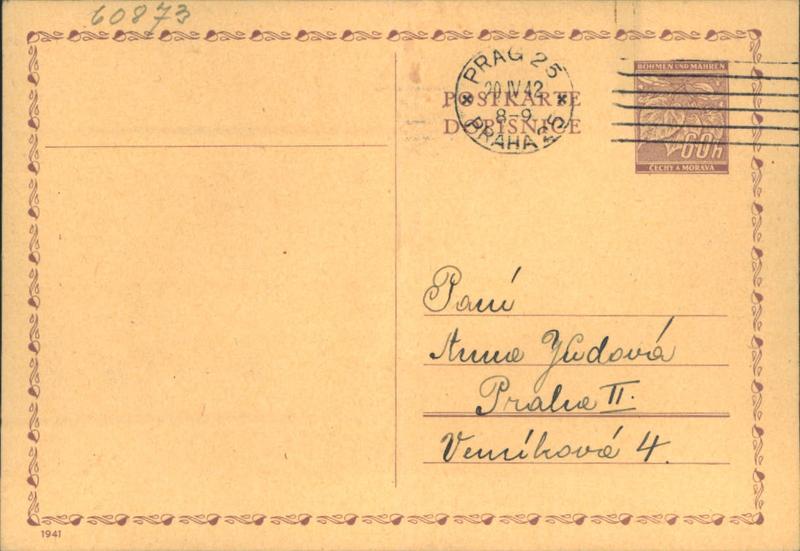 60873
PRAG 25
20 IV 42
8-9
PRAHA 25
POSTKARTE
DOPISNICE
BÖHMEN UND MÄHREN
60h
ČECHY A MORAVA
Paní
Anna
Praha II.
4.
1941